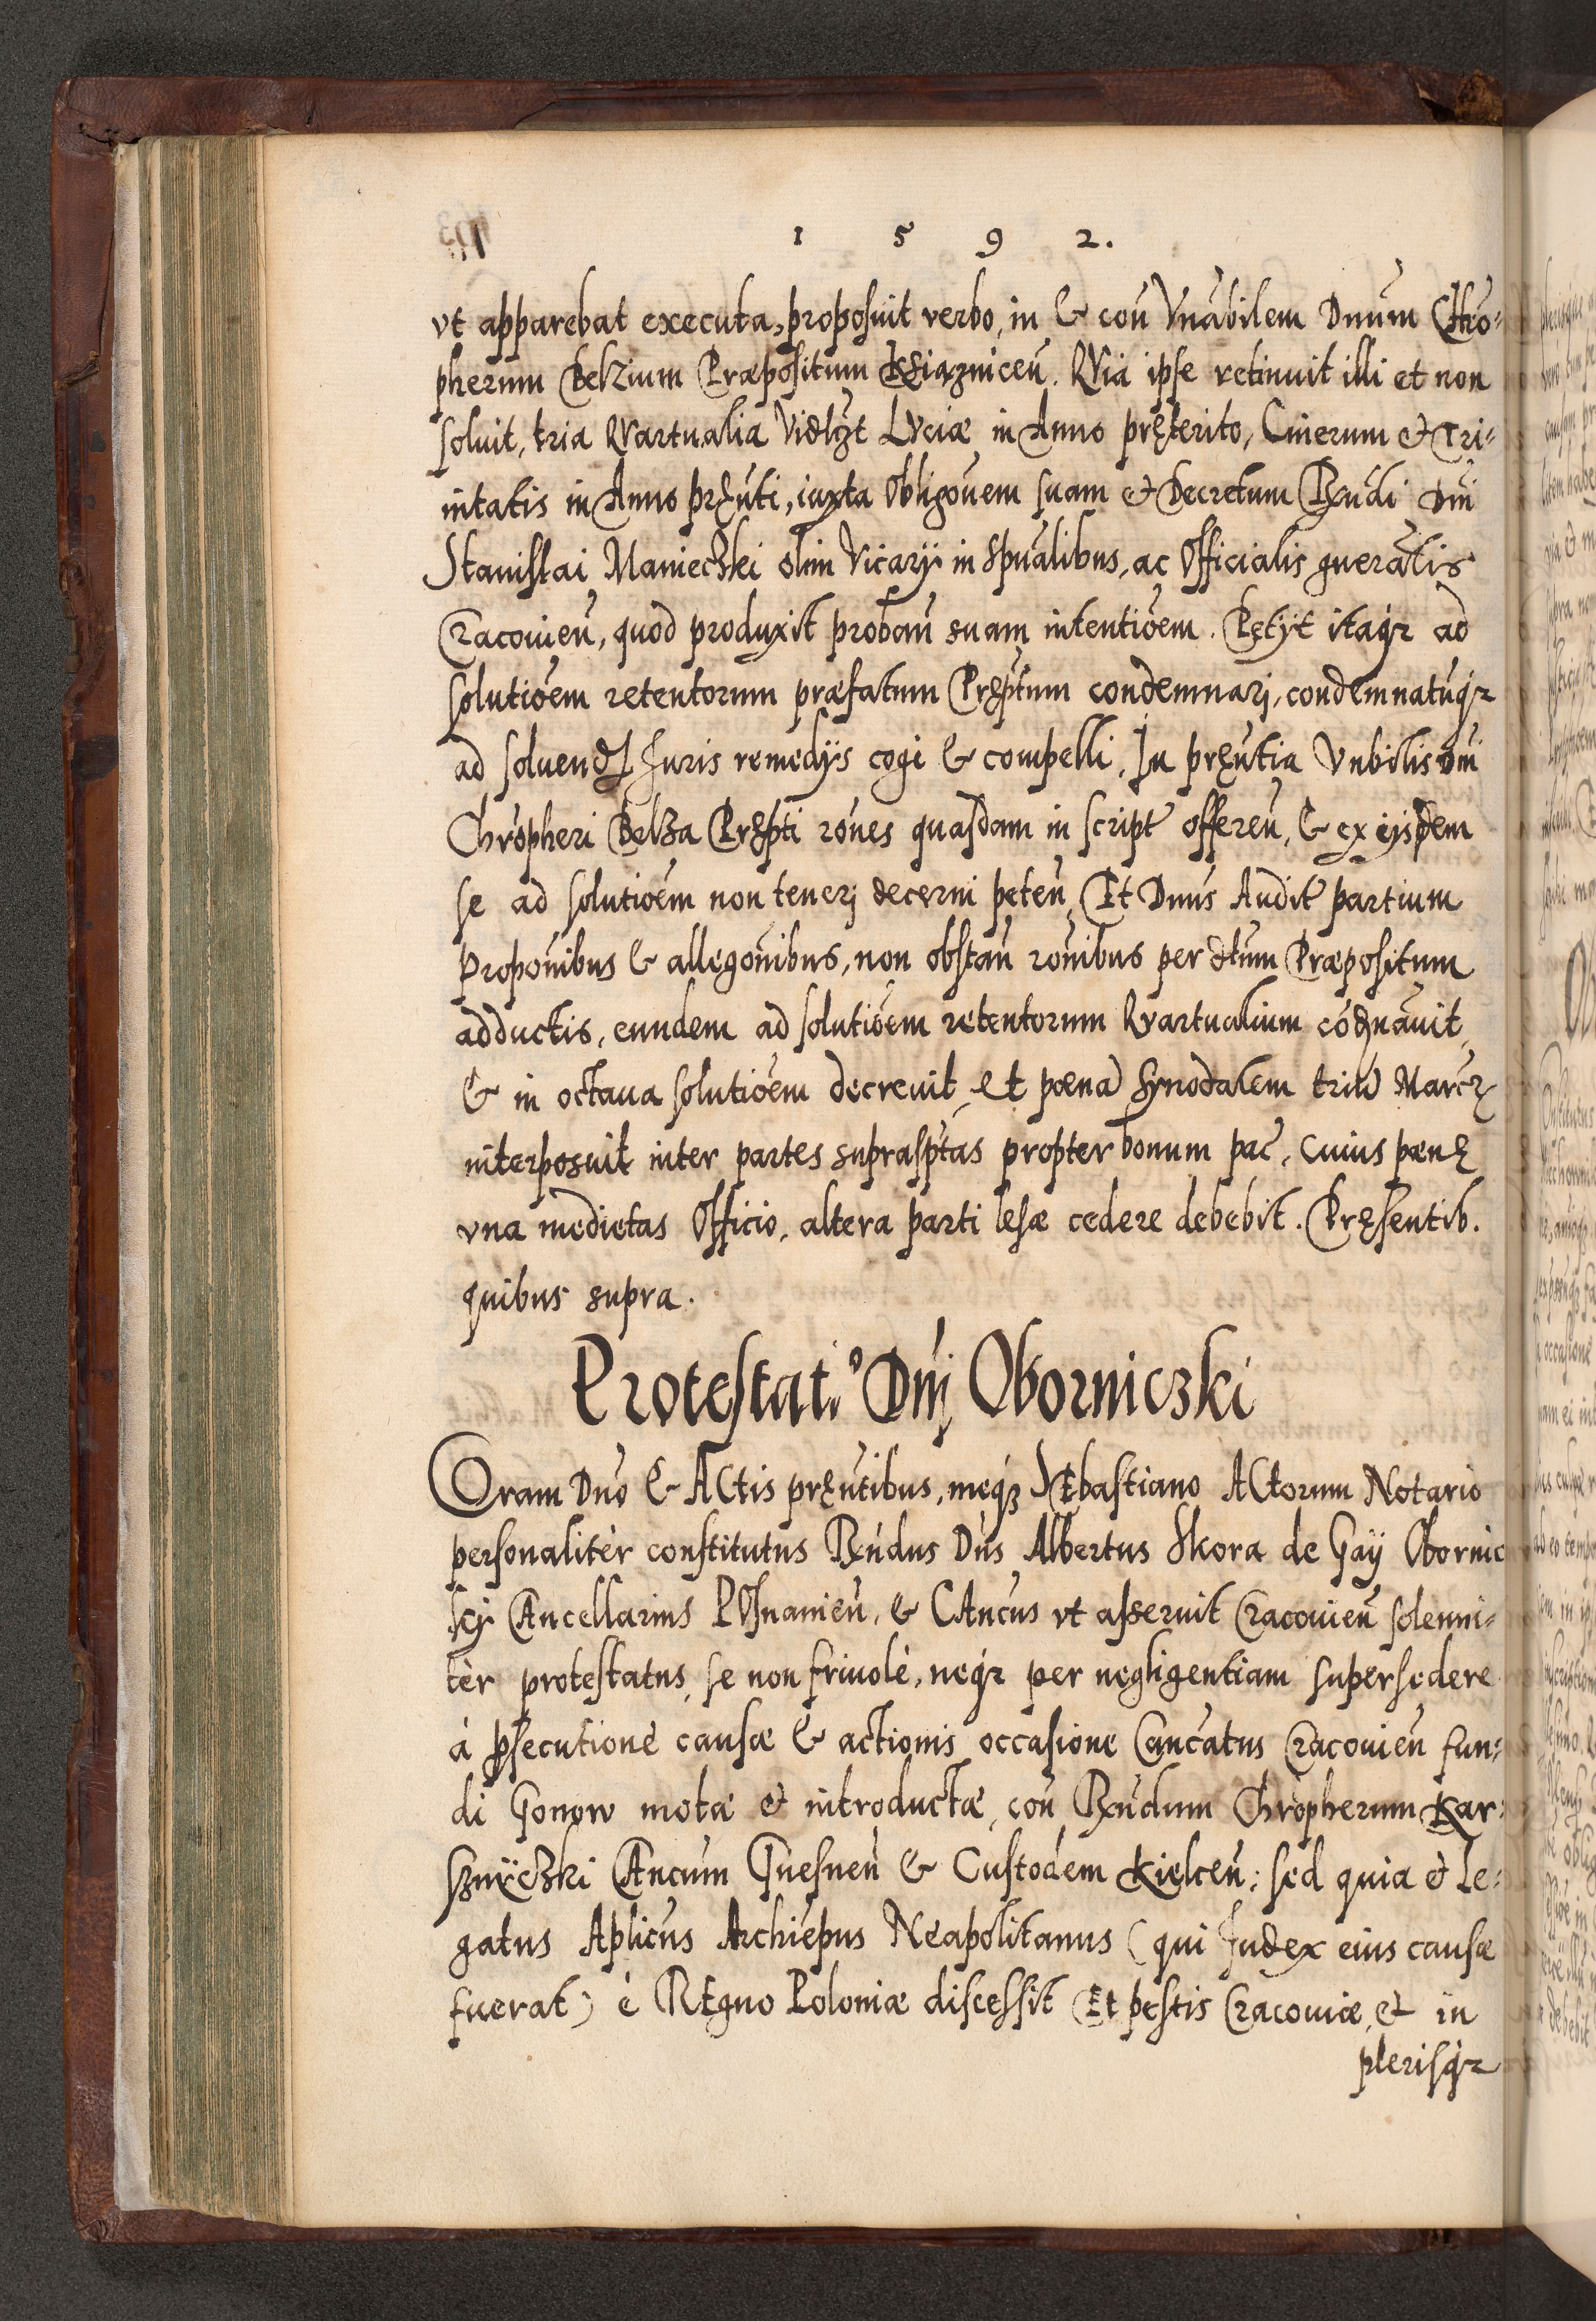 1 5 9 2.
vt apparebat executa, proposuit verbo, in & coñ Vnãbilem Dnũm Chrõ⸗
pherum Belzium Præpositum Książniceñ. Quia ipse retinuit illi et non
soluit, tria Quartualia Vidlzt Lvciæ in Anno pręterito, Cinerum et Tri⸗
nitatis in Anno pręñti, iuxta Obligoñem suam et Decretum Rñdi Dñi
Stanislai Manieczki olim Vicarij in Spũalibus, ac Officialis gñeralis
Cracouieñ, quod produxit probañ suam intentiõem. Petijt itaqз ad
solutiõem retentorum præfatum Pręptum condemnarj, condemnatũqз
ad soluend Juris remedijs cogi & compelli. In pręñtia Vnbilis Dñi
Chrõpheri Belza Prępti rões quasdam in script offereñ, & ex eisdem
se ad solutiõem non tenerj decerni peteñ, Et Dnũs Audit partium
Propoñibus & allegoñibus, non obstañ roñibus per dtum Præpositum
adductis, eundem ad solutiõem retentorum Quartualium cõdẽnauit,
& in octaua solutiõem decreuit, et pœnã Synodalem triũ Marcz
interposuit inter partes suprasptas propter bonum pac, Cuius pænę
vna medietas Officio, altera parti lesæ cedere debebit. Pręsentib.
quibus supra.
Protestati.º Dnj Oborniczki
Coram Dnõ & ACtis pręñtibus, meqз SEbastiano ACtorum Notario
personalitèr constitutus Rñdus Dñs Albertus Skora de Gaÿ Obornic
scj CAncellarius POsnanieñ, & CAncũs vt asseruit Cracouieñ solenni⸗
tèr protestatus, se non friuolè, neqз per negligentiam supersedere
à psecutione causæ & actionis occasione Cancatus Cracouieñ fun⸗
di Gonow motæ et introductæ, coñ Rñdum Chrõpherum Kar⸗
sznÿczki CAncum Gnesneñ & Custodem Kielceñ; sed quia et Le⸗
gatus Aplicus Archiepus Neapolitanus (qui Judex eius causæ
fuerat) è REgno Poloniæ discessit Et pestis Cracouiæ, et in
plerisqз